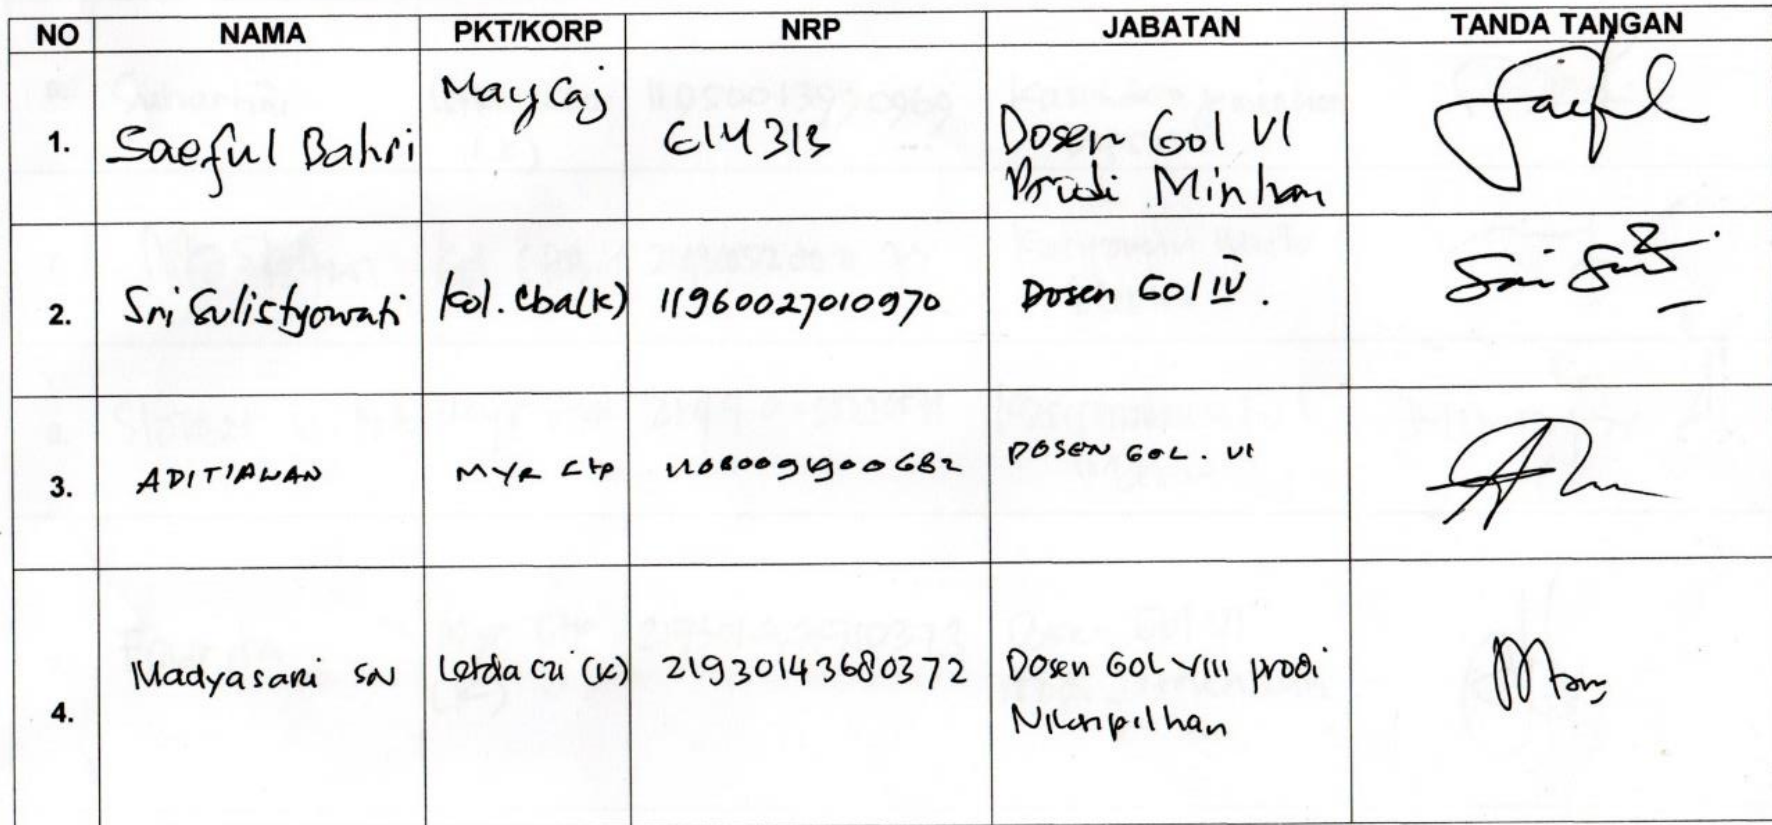 NO NAMA PKT/KORP NRP JABATAN TANDA TANGAN
1. Saeful Bahri May Caj 614313 Dosen Gol VI
Prodi Minhan
2. Sri Sulistyowati Kol. Cba(k) 11960027010970 Dosen Gol IV.
3. ADITIAWAN MYR 682 DOSEN GOL. VI
4. Madyasari SN Letda Czi (k) 21930143680372 Dosen GOL VIII prodi